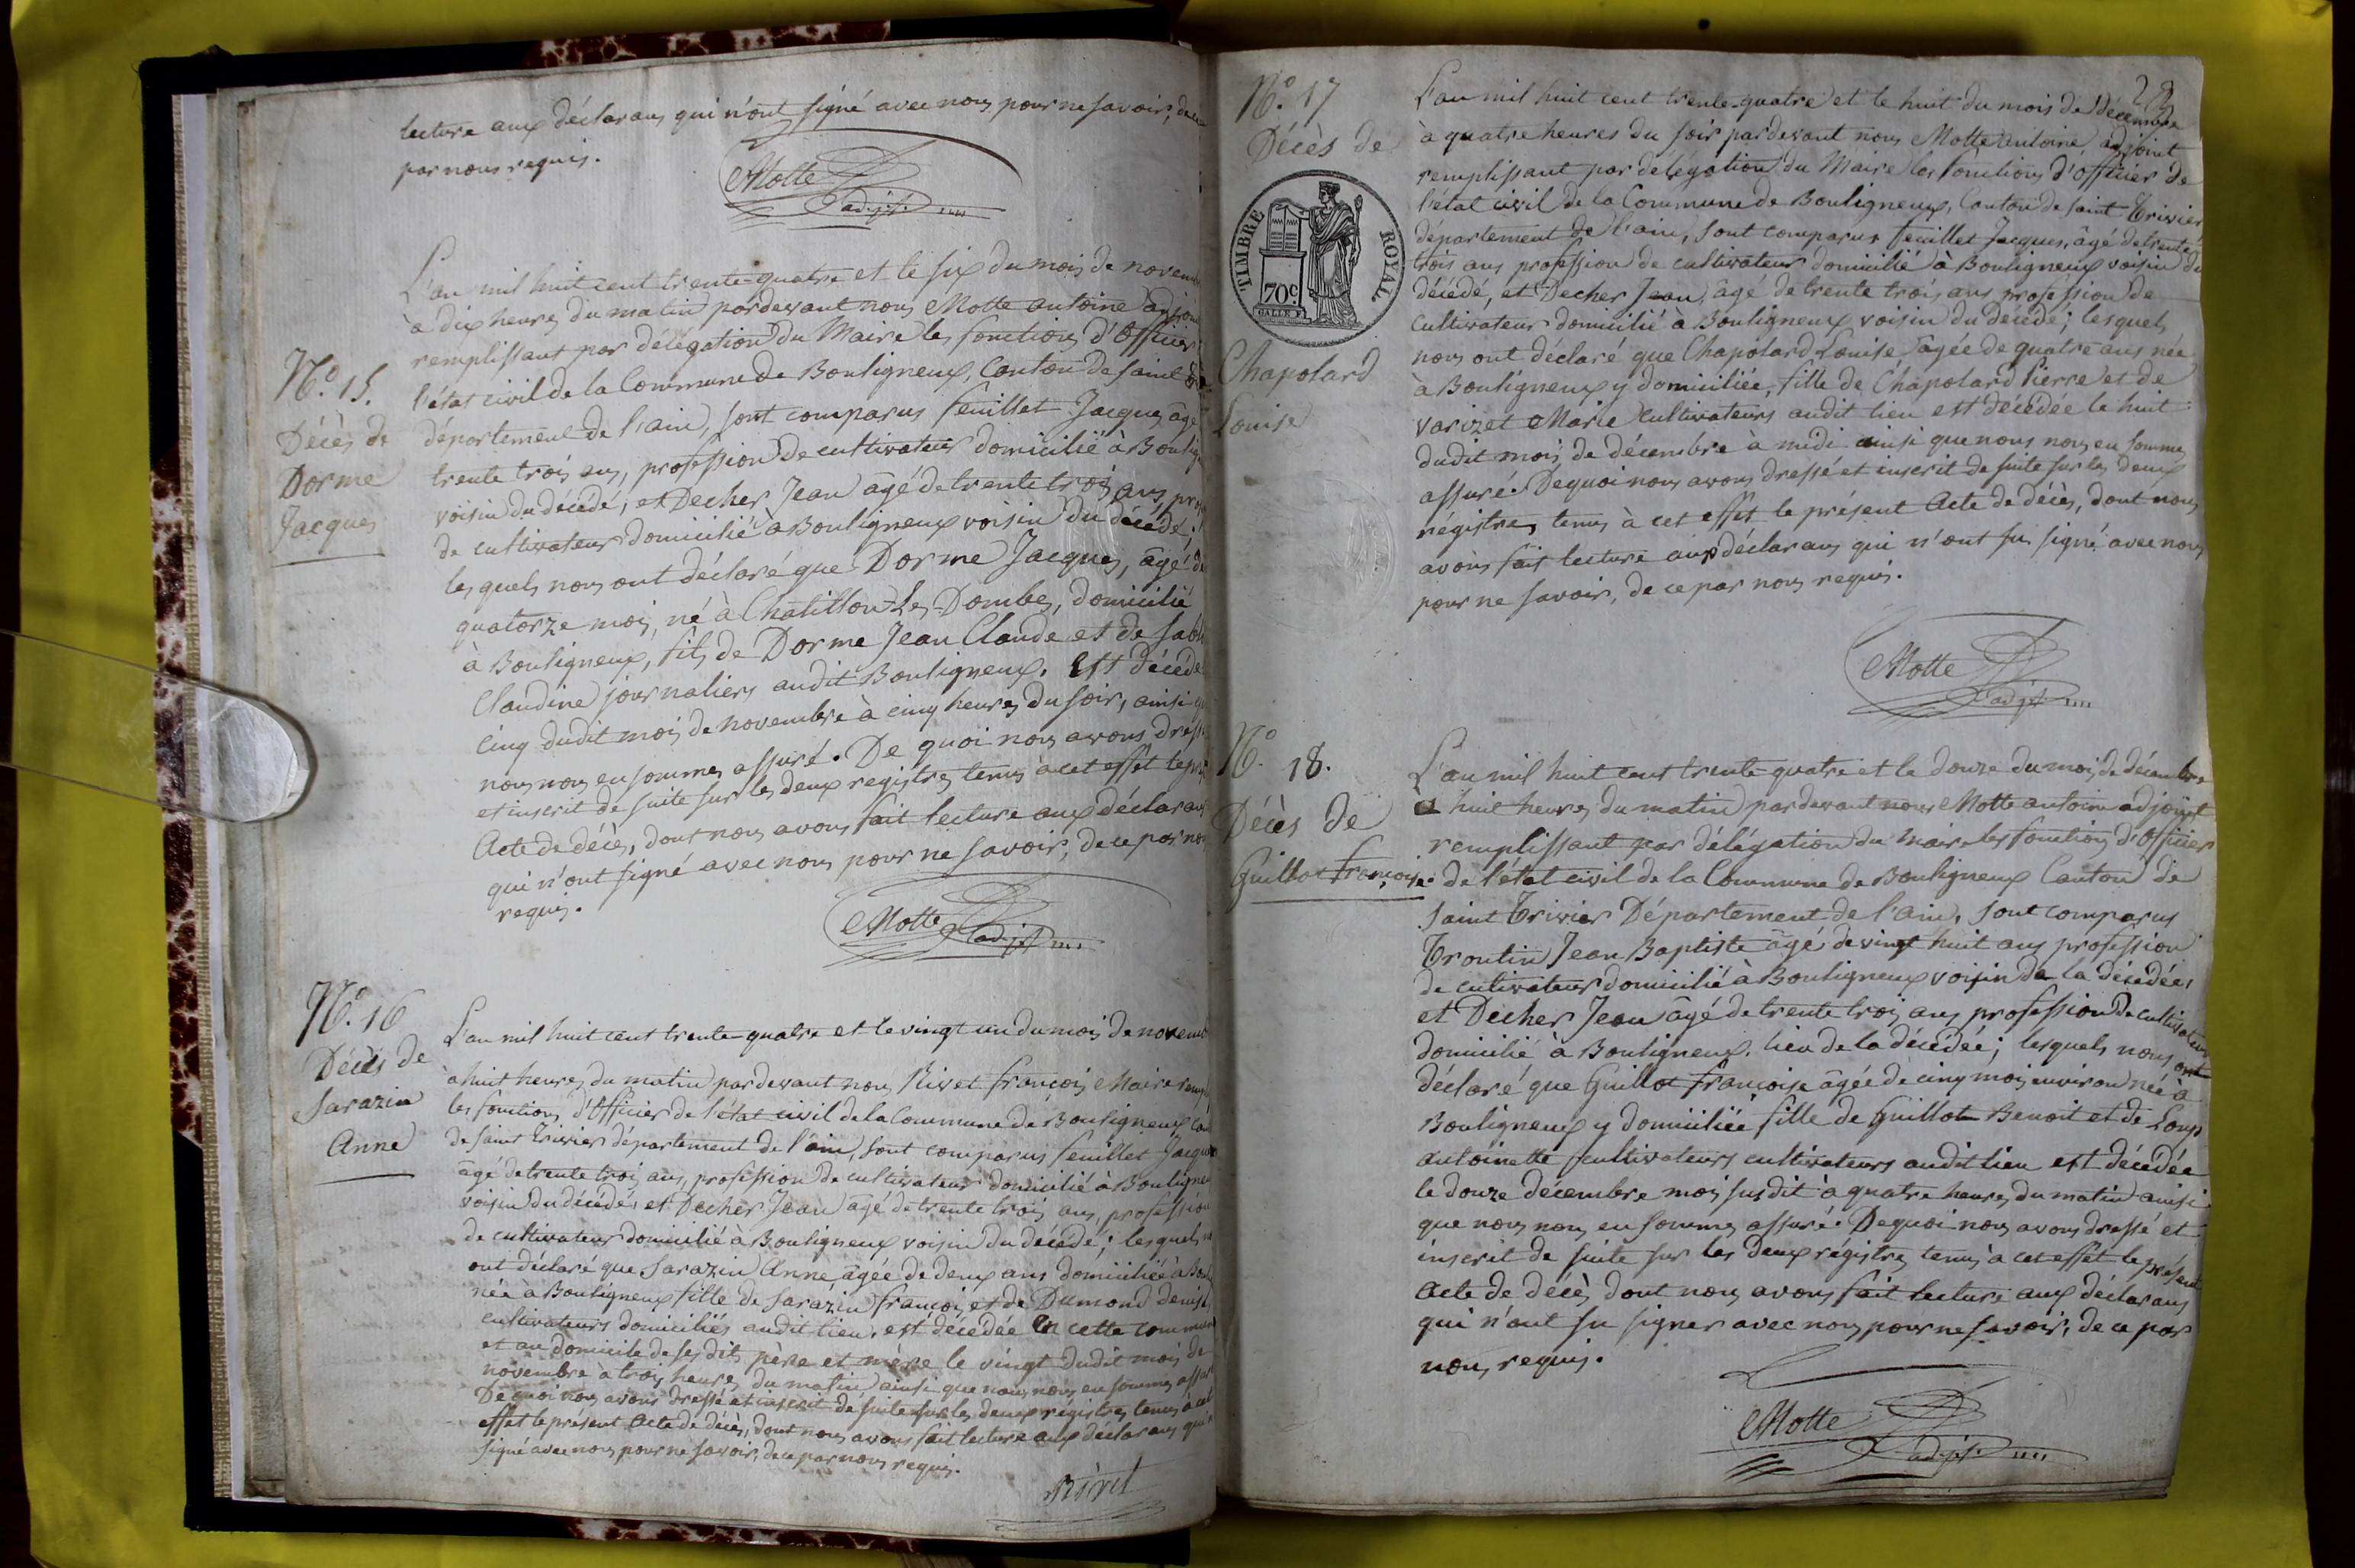 lecture aux déclarans qui n'ont signé avec nous pour ne savoir, de ce
par nous requis.
Motte
adjt
N.o 15.
Décès de
Dorme
Jacques
L'an mil huit cent trente-quatre et le six du mois de novem
à dix heures du matin pardevant nous Motte antoine adjoin
remplissant par délégation du Maire les fonctions d'Officier
l'état civil de la Commune de Bouligneux, Canton de saint
département de l'ain, sont comparus feuillet Jacques, âgé
trente trois ans, profession de cultivateur domicilié à Boulig
voisin du décédé, et Decher Jean âgé de trente trois ans, pro
de cultivateur domicilié à Bouligneux voisin du décédé,
les quels nous ont déclaré que Dorme Jacques, âgé de
quatorze mois, né à Chatillon-Les-Dombes, domicilié
à Bouligneux, fils de Dorme Jean Claude et de
Claudine journaliers audit Bouligneux. Est décédé
cinq dudit mois de novembre à cinq heures du soir, ainsi
nous nous en sommes assuré. De quoi nous avons dress
et inscrit de suite sur les deux registres tenus à cet effet le pré
Acte de décès, dont nous avons fait lecture aux déclarans
qui n'ont signé avec nous pour ne savoir, de ce par nous
requis.
Motte
adjt
N.o 16
Décès de
Sarazin
Anne
L'an mil huit cent trente-quatre et le vingt un du mois de novem
à huit heures du matin pardevant nous Rivet françois Maire remp
les fonctions d'Officier de l'état civil de la Commune de Bouligneux, can
de saint trivier département de l'ain, sont comparus feuillet Jacques
âgé de trente trois ans, profession de cultivateur domicilié à Bouligne
voisin du décédé, et Decher Jean âgé de trente trois ans, profession
de cultivateur domicilié à Bouligneux voisin du décédé; lesquels
ont déclaré que Sarazin Anne, âgée de deux ans domiciliée à Bou
née à Bouligneux fille de Sarazin françois et de Dumond denise
cultivateurs domiciliés audit lieu, est décédée en cette commun
et au domicile de ses dits père et mère le vingt dudit mois de
novembre à trois heures du matin ainsi que nous nous en sommes assu
De quoi nous avons dressé et inscrit de suite sur les deux régistres tenus à cet
effet le présent Acte de décès, dont nous avons fait lecture aux déclarans qui
signé avec nous pour ne savoir, de ce par nous requis.
Rivet
29
N.o 17
Décès de
TIMBRE ROYAL
70c
Chapolard
Louise
L'an mil huit cent trente-quatre et le huit du mois de décembre
à quatre heures du soir pardevant nous Motte antoine adjoint
remplissant par délégation du Maire les fonctions d'officier de
l'état civil de la Commune de Bouligneux, Canton de saint Trivier,
département de l'ain, sont comparus feuillet Jacques, âgé de trente
trois ans profession de cultivateur domicilié à Bouligneux voisin du
décédé, et Decher Jean, âgé de trente trois ans profession de
cultivateur domicilié à Bouligneux voisin du décédé; lesquels
nous ont déclaré que Chapolard Louise, âgée de quatre ans née
à Bouligneux y domiciliée, fille de Chapolard Pierre et de
varizet Marie cultivateurs audit lieu est décédée le huit
dudit mois de décembre a midi ainsi que nous nous en sommes
assuré. De quoi nous avons dressé et inscrit de suite sur les deux
régistres tenus à cet effet le présent Acte de décès, dont nous
avons fait lecture aux déclarans qui n'ont su signé avec nous
pour ne savoir, de ce par nous requis.
Motte
adjt
N.o 18.
Décès de
Guillot françoise.
L'an mil huit cent trente-quatre et le douze du mois de décembre
a huit heures du matin pardevant nous Motte antoine adjoint
remplissant par délégation du maire les fonctions d'Officier
de l'état civil de la Commune de Bouligneux Canton de
saint Trivier Département de l'ain, sont comparus
Troutin Jean Baptiste âgé de vingt huit ans profession
de cultivateur domicilié à Bouligneux voisin de la décédée,
et Decher Jean âgé de trente trois ans profession de cultivateur
domicilié à Bouligneux. lieu de la décédée; lesquels nous ont
déclaré que Guillot françoise âgée de cinq mois environ née à
Bouligneux y domiciliée fille de Guillot Benoit et de Loup
antoinette cultivateurs cultivateurs audit lieu est décédée
le douze décembre mois susdit à quatre heures du matin ainsi
que nous nous en sommes assuré. De quoi nous avons dressé et
inscrit de suite sur les deux régistres tenus à cet effet le présent
Acte de décès dont nous avons fait lecture aux déclarans
qui n'ont su signer avec nous pour ne savoir, de ce par
nous requis.
Motte
adjt